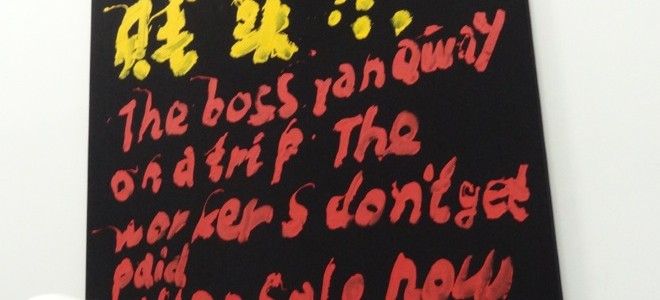 The boss ran away
on a trip The
workers don't get
paid
on sale now